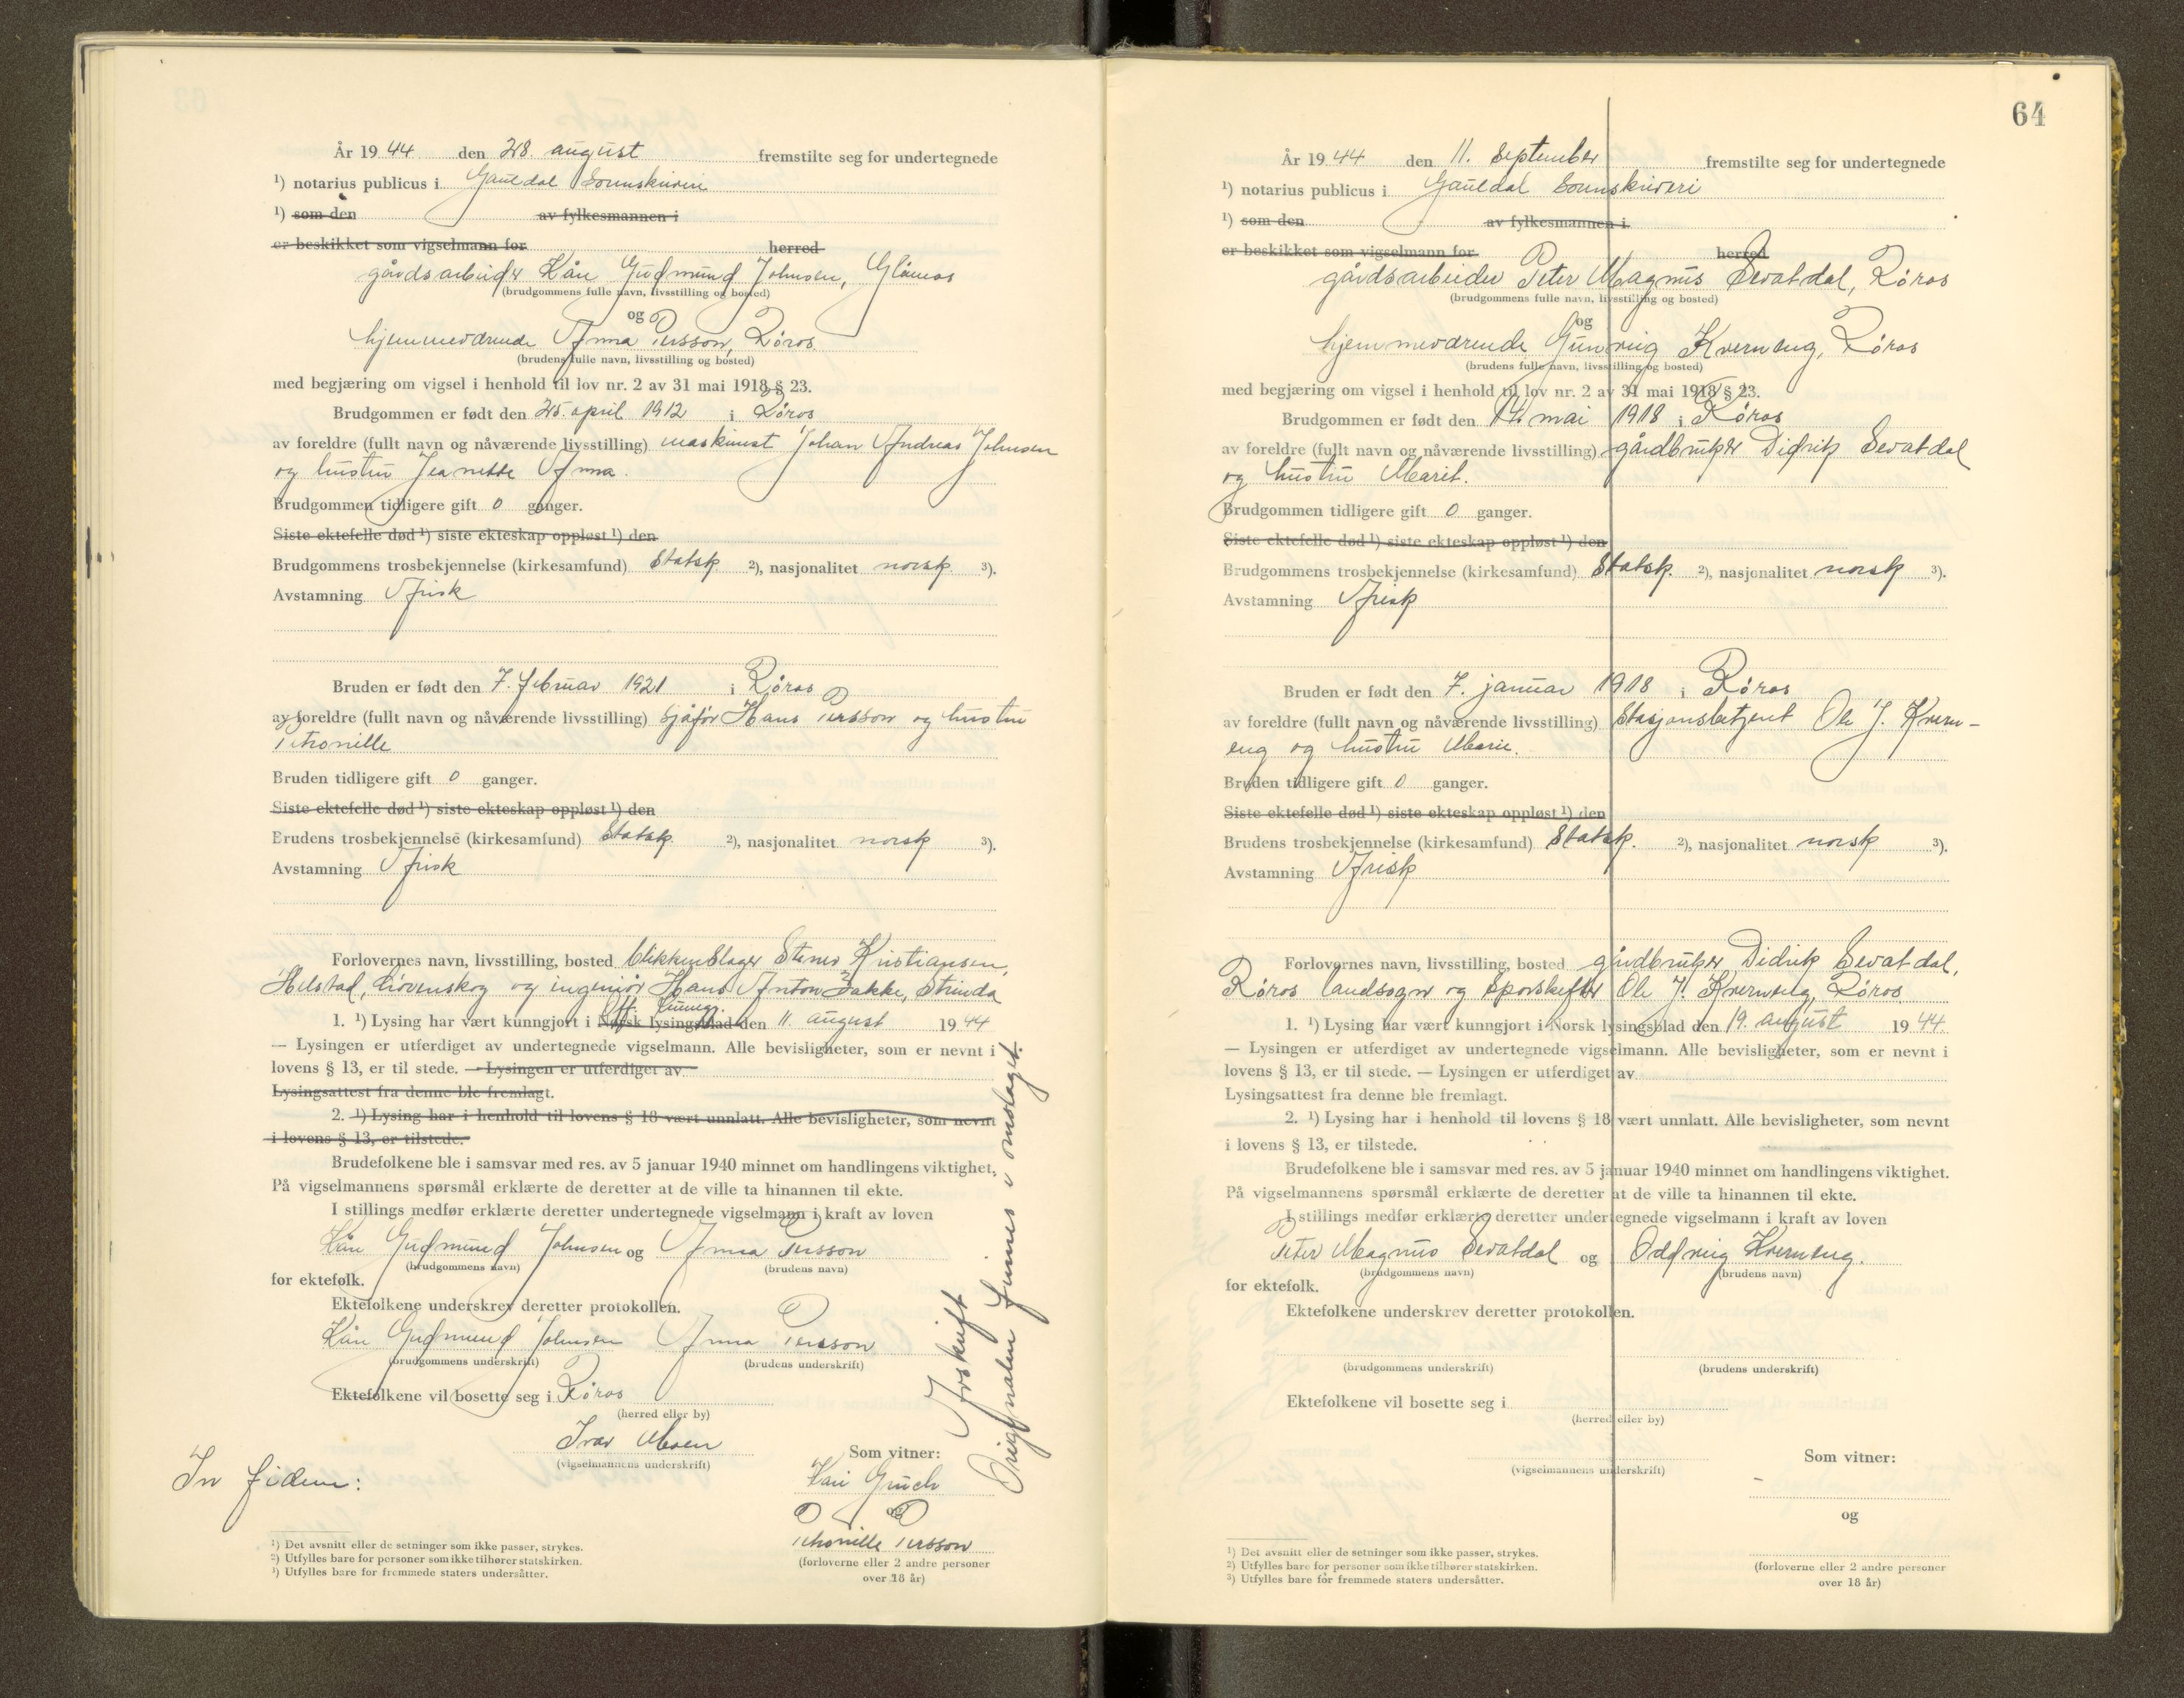 År 1944 den 28. august fremstilte seg for undertegnede
¹) notarius publicus i Gauldal Sorenskriveri
¹) som den av fylkesmannen i
er beskikket som vigselmann for herred
gårdsarbeider Kåre Gudmund Johnsen, Glåmos
(brudgommens fulle navn, livsstilling og bosted)
og
hjemmeværende Anna Persson, Røros
(brudens fulle navn, livsstilling og bosted)
med begjæring om vigsel i henhold til lov nr. 2 av 31 mai 1918 § 23.
Brudgommen er født den 25. april 1912 i Røros
av foreldre (fullt navn og nåværende livsstilling) maskinist Johan Andreas Johnsen
og hustru Jeanette Anna.
Brudgommen tidligere gift 0 ganger.
Siste ektefelle død ¹) siste ekteskap oppløst ¹) den
Brudgommens trosbekjennelse (kirkesamfund) Statsk ²), nasjonalitet norsk ³).
Avstamning Arisk
Bruden er født den 7. februar 1921 i Røros
av foreldre (fullt navn og nåværende livsstilling) sjåfør Hans Persson og hustru
Petronille
Bruden tidligere gift 0 ganger.
Siste ektefelle død ¹) siste ekteskap oppløst ¹) den
Brudens trosbekjennelse (kirkesamfund) Statsk. ²), nasjonalitet norsk ³).
Avstamning Arisk
Forlovernes navn, livsstilling, bosted blikkenslager Kristiansen,
Lørenskog og ingeniør Hans Anton Bakke, Strinda
Off. kunngj.
1. ¹) Lysing har vært kunngjort i Norsk lysingsblad den 11. august 1944
— Lysingen er utferdiget av undertegnede vigselmann. Alle bevisligheter, som er nevnt i
lovens § 13, er til stede. — Lysingen er utferdiget av
Lysingsattest fra denne ble fremlagt.
2. ¹) Lysing har i henhold til lovens § 18 vært unnlatt. Alle bevisligheter, som nevnt
i lovens § 13, er tilstede.
Brudefolkene ble i samsvar med res. av 5 januar 1940 minnet om handlingens viktighet.
På vigselmannens spørsmål erklærte de deretter at de ville ta hinannen til ekte.
I stillings medfør erklærte deretter undertegnede vigselmann i kraft av loven
Kåre Gudmund Johnsen og Anna Persson
(brudgommens navn) (brudens navn)
for ektefolk.
Ektefolkene underskrev deretter protokollen.
Kåre Gudmund Johnsen Anna Persson
(brudgommens underskrift) (brudens underskrift)
Ektefolkene vil bosette seg i Røros
(herred eller by)
Ivar Moen
(vigselmannens underskrift)
Som vitner:
In fidem:
Kari Gruch
og
Petronille Persson
(forloverne eller 2 andre personer
over 18 år)
Avskrift
Originalen finnes i omslaget.
¹) Det avsnitt eller de setninger som ikke passer, strykes.
²) Utfylles bare for personer som ikke tilhører statskirken.
³) Utfylles bare for fremmede staters undersåtter.
64
År 1944 den 11. September fremstilte seg for undertegnede
¹) notarius publicus i Gauldal Sorenskriveri
¹) som den av fylkesmannen i
er beskikket som vigselmann for herred
gårdsarbeider Peter Magnus Sevatdal, Røros
(brudgommens fulle navn, livsstilling og bosted)
og
hjemmeværende Kverneng, Røros
(brudens fulle navn, livsstilling og bosted)
med begjæring om vigsel i henhold til lov nr. 2 av 31 mai 1918 § 23.
Brudgommen er født den 14. mai 1918 i Røros
av foreldre (fullt navn og nåværende livsstilling) gårdbruker Didrik Sevatdal
og hustru Marit.
Brudgommen tidligere gift 0 ganger.
Siste ektefelle død ¹) siste ekteskap oppløst ¹) den
Brudgommens trosbekjennelse (kirkesamfund) Statsk. ²), nasjonalitet norsk ³).
Avstamning Arisk
Bruden er født den 7. januar 1918 i Røros
av foreldre (fullt navn og nåværende livsstilling) Stasjonsbetjent Ole J. Kvern-
eng og hustru Marie.
Bruden tidligere gift 0 ganger.
Siste ektefelle død ¹) siste ekteskap oppløst ¹) den
Brudens trosbekjennelse (kirkesamfund) Statsk. ²), nasjonalitet norsk ³).
Avstamning Arisk
Forlovernes navn, livsstilling, bosted gårdbruker Didrik Sevatdal,
Røros landsogn og sporskifter Ole J. Kverneng, Røros
1. ¹) Lysing har vært kunngjort i Norsk lysingsblad den 19. august 1944.
— Lysingen er utferdiget av undertegnede vigselmann. Alle bevisligheter, som er nevnt i
lovens § 13, er til stede. — Lysingen er utferdiget av
Lysingsattest fra denne ble fremlagt.
2. ¹) Lysing har i henhold til lovens § 18 vært unnlatt. Alle bevisligheter, som nevnt
i lovens § 13, er tilstede.
Brudefolkene ble i samsvar med res. av 5 januar 1940 minnet om handlingens viktighet.
På vigselmannens spørsmål erklærte de deretter at de ville ta hinannen til ekte.
I stillings medfør erklærte deretter undertegnede vigselmann i kraft av loven
Peter Magnus Sevatdal og Oddveig Kverneng.
(brudgommens navn) (brudens navn)
for ektefolk.
Ektefolkene underskrev deretter protokollen.
(brudgommens underskrift) (brudens underskrift)
Ektefolkene vil bosette seg i
(herred eller by)
Som vitner:
(vigselmannens underskrift)
og
(forloverne eller 2 andre personer
over 18 år)
¹) Det avsnitt eller de setninger som ikke passer, strykes.
²) Utfylles bare for personer som ikke tilhører statskirken.
³) Utfylles bare for fremmede staters undersåtter.